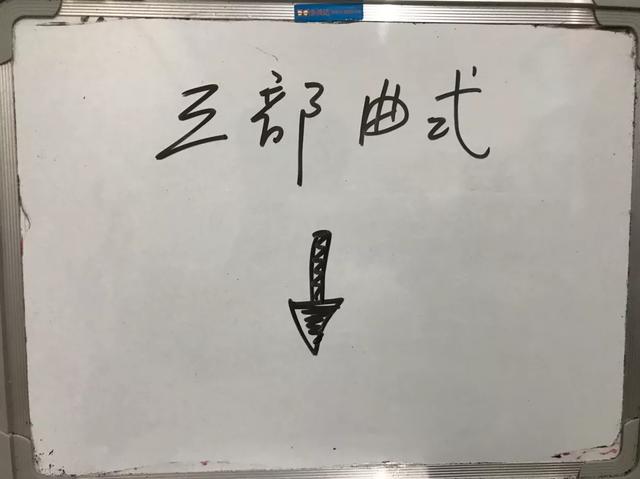 三部曲式